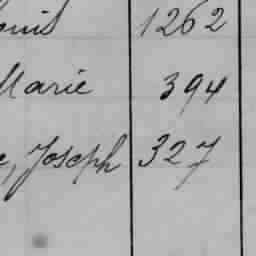 1262
Marie 394
Joseph 327